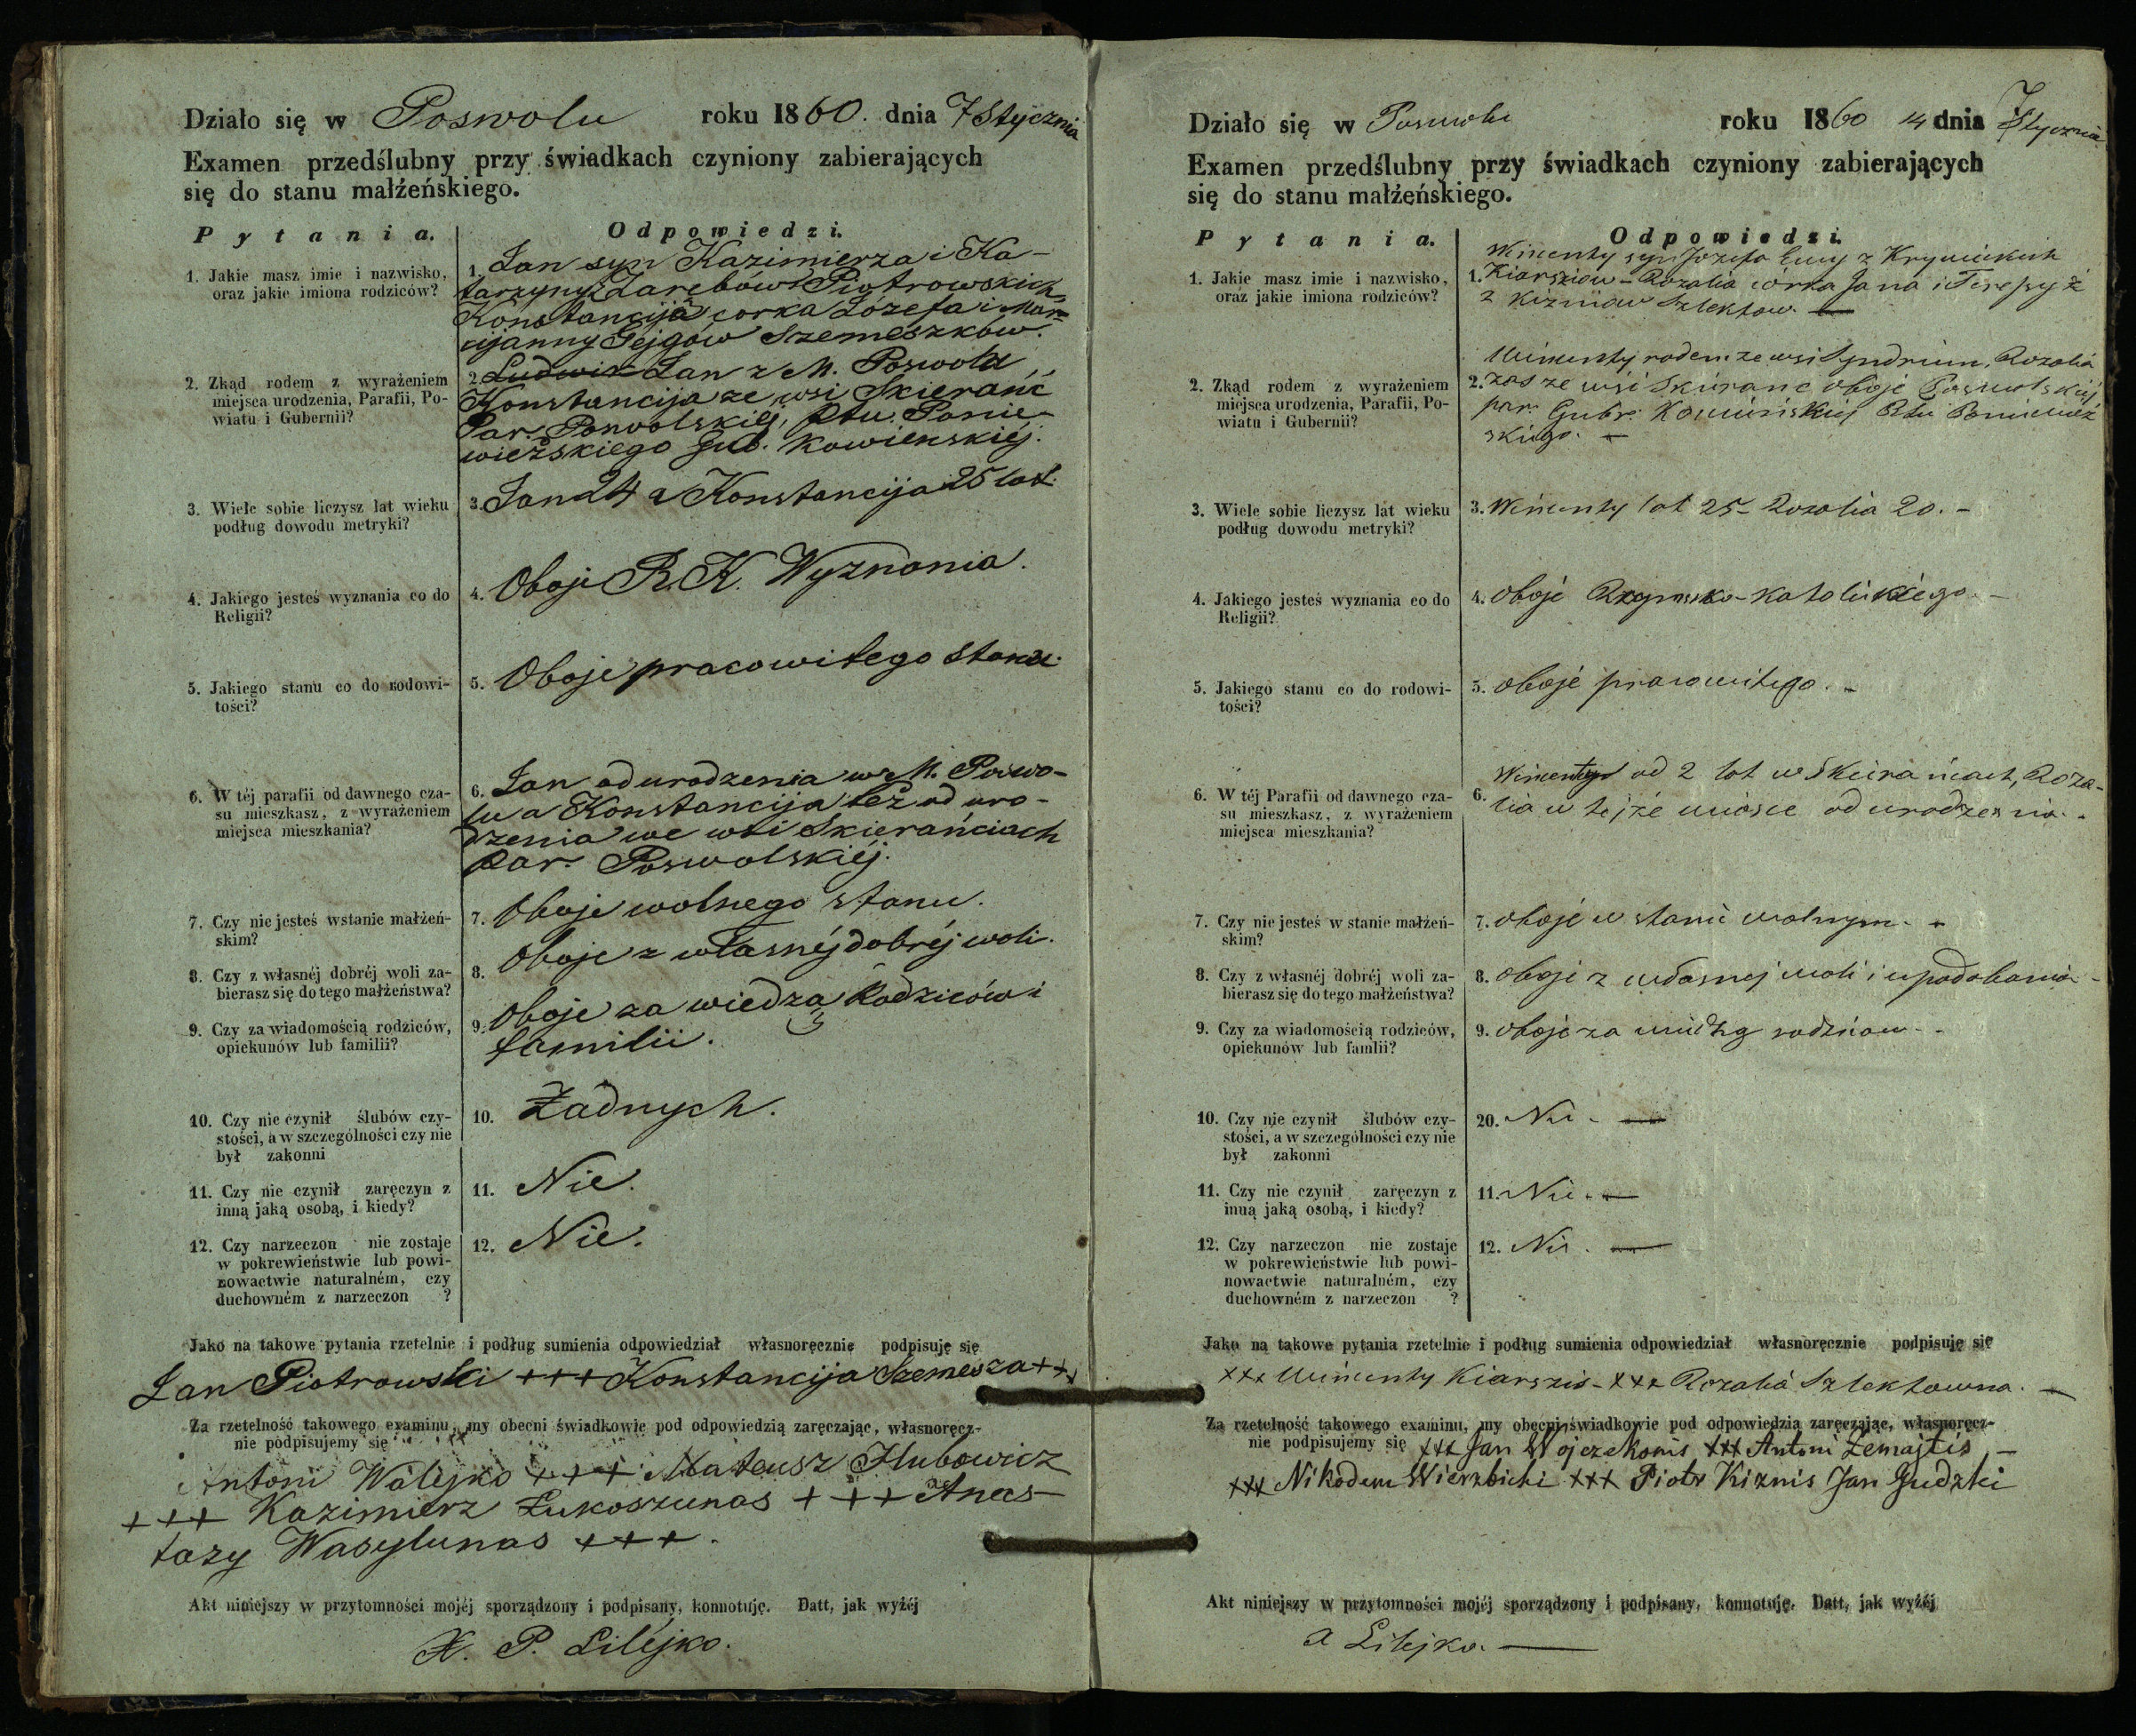 Działo się w Poswolu roku 1860. dnia 7 Stycznia
Examen przedślubny przy świadkach czyniony zabierających
się do stanu małżeńskiego.
Pytania. Odpowiedzi.
1. Jakie masz imie i nazwisko,
oraz jakie imiona rodziców?
1. Jan syn Kazimierza i Ka-
tarzyny z Zarębów Piotrowskich
Konstancija corka Józefa i Mar-
cijanny Gejgów Szemeszków.
2. Zkąd rodem z wyrażeniem
miejsca urodzenia, Parafii, Po-
wiatu i Gubernii?
2. Ludwik Jan z M. Poswola
Konstancija ze wsi Skierańć
Par. Poswolskiéj, Ptu. Ponie-
wieżskiego Gub. Kowienskiéj.
3. Wiele sobie liczysz lat wieku
podług dowodu metryki?
3. Jan 24 a Konstancija 25 lat.
4. Jakiego jesteś wyznania co do
Religii?
4. Oboje R. K. Wyznania.
5. Jakiego stanu co do rodowi-
tości?
5. Oboje pracowitego stanu.
6. W téj parafii od dawnego cza-
su mieszkasz, z wyrażeniem
miejsca mieszkania?
6. Jan od urodzenia w M. Poswo-
lu a Konstancija też od uro-
dzenia we wsi Skierańciach
Par. Poswolskiéj.
7. Czy nie jesteś wstanie małżeń-
skim?
7. Oboje wolnego stanu.
8. Czy z własnéj dobréj woli za-
bierasz się do tego małżeństwa?
8. Oboje z własnéj dobréj woli.
9. Czy za wiadomością rodziców,
opiekunów lub familii?
9. Oboje za wiedzą Rodziców i
familii.
10. Czy nie czynił ślubów czy-
stości, a w szczególności czy nie
był zakonni
10. Żadnych.
11. Czy nie czynił zaręczyn z
inną jaką osobą, i kiedy?
11. Nie.
12. Czy narzeczon nie zostaje
w pokrewieństwie lub powi-
nowactwie naturalném, czy
duchowném z narzeczon ?
12. Nie.
Jako na takowe pytania rzetelnie i podług sumienia odpowiedział własnoręcznie podpisuję się
Jan Piotrowski +++ Konstancija Szemesza +++
Za rzetelność takowego examinu, my obecni świadkowie pod odpowiedzią zaręczając, własnoręcz-
nie podpisujemy się
Antoni Walejko +++ Mateusz Hlubowicz
+++ Kazimierz Łukoszunas +++ Anas-
tazy Wasylunas +++.
Akt niniejszy w przytomności mojéj sporządzony i podpisany, konnotuję. Datt, jak wyżéj
X. P. Lilejko.
Działo się w Poswolu roku 1860 14 dnia Stycznia
Examen przedślubny przy świadkach czyniony zabierających
się do stanu małżeńskiego.
Pytania. Odpowiedzi.
1. Jakie masz imie i nazwisko,
oraz jakie imiona rodziców?
Wincenty syn Józefa Ewy z
1. Kiarsziow - Rozalia córka Jana i Teressy
z Kizniow Szlektow.
2. Zkąd rodem z wyrażeniem
miejsca urodzenia, Parafii, Po-
wiatu i Gubernii?
Wincenty rodem ze wsi Rozalia
2. zas ze wsi Skieranc oboje Poswolskiej
par. Gubr. Kowienskiej Ptu Poniewież
skiego.
3. Wiele sobie liczysz lat wieku
podług dowodu metryki?
3. Wincenty lat 25 - Rozalia 20. -
4. Jakiego jesteś wyznania co do
Religii?
4. Oboje Rzymsko-katolickiego. -
5. Jakiego stanu co do rodowi-
tości?
5. oboje pracowitego. -
6. W téj Parafii od dawnego cza-
su mieszkasz, z wyrażeniem
miejsca mieszkania?
Wincenty od 2 lat w Skierańcach, Roza-
6. lia w tejże wiosce od urodzenia. -
7. Czy nie jesteś w stanie małżeń-
skim?
7. oboje w stanie wolnym. -
8. Czy z własnéj dobréj woli za-
bierasz się do tego małżeństwa?
8. oboje z własnej woli i upodobania -
9. Czy za wiadomością rodziców,
opiekunów lub famlii?
9. oboje za wiedzą rodzicow. -
10. Czy nie czynił ślubów czy-
stości, a w szczególności czy nie
był zakonni
20. Nie. -
11. Czy nie czynił zaręczyn z
inną jaką osobą, i kiedy?
11. Nie. -
12. Czy narzeczon nie zostaje
w pokrewieństwie lub powi-
nowactwie naturalném, czy
duchowném z narzeczon ?
12. Nie. -
Jako na takowe pytania rzetelnie i podług sumienia odpowiedział własnoręcznie podpisuję się
+++ Wincenty Kiarszis - +++ Rozalia Szlektowna. -
Za rzetelność takowego examinu, my obecni świadkowie pod odpowiedzią zaręczając, własnoręcz-
nie podpisujemy się +++ Jan Wojczekonis +++ Antoni Żemajtis -
+++ Nikodem Wierzbicki +++ Piotr Kiznis Jan Gudzki
Akt niniejszy w przytomności mojéj sporządzony i podpisany, konnotuję. Datt, jak wyżéj
Lilejko.